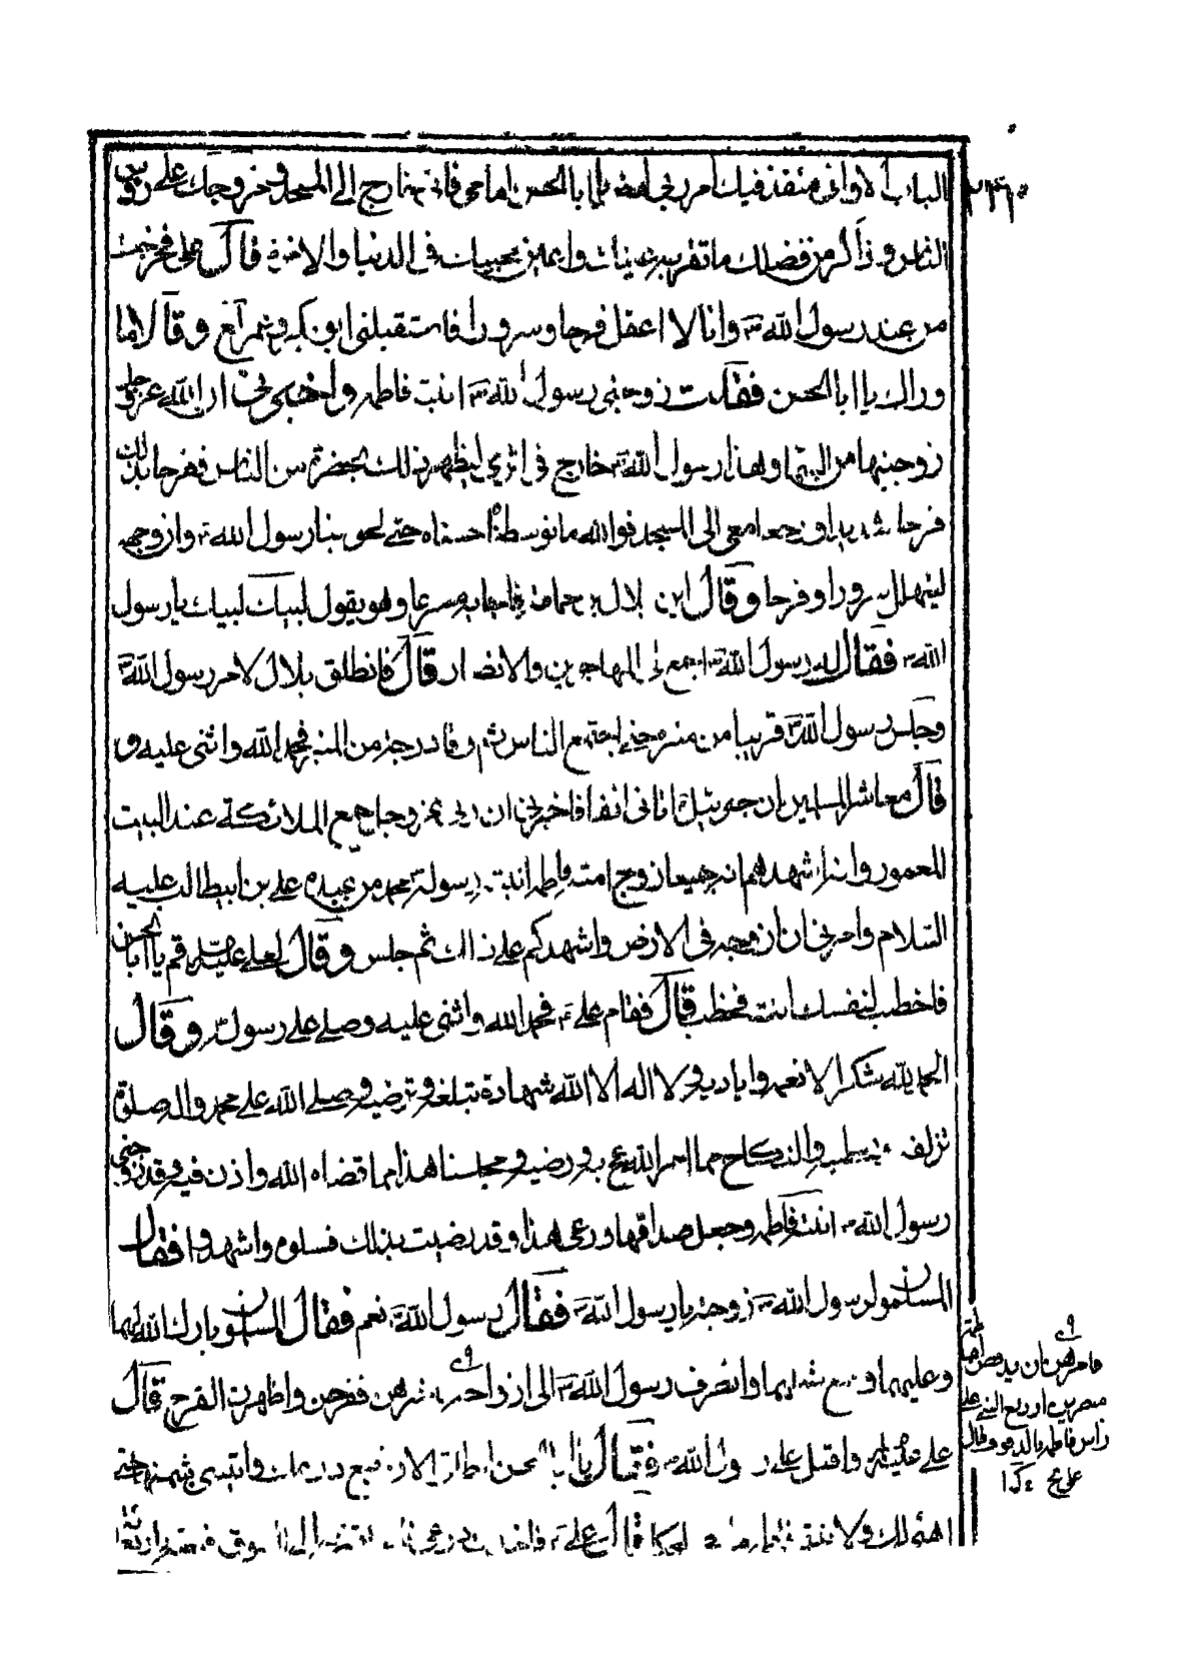 الباب الا واني منفذ فيك امر ربي امض يا ابا الحسن امامي فاني خارج الى المسجد ومزوجك على رؤس
الناس وذاكر من فضلك ما تقر به عينك واعين محبيك في الدنيا والاخرة قال علي فخرجت
من عند رسول الله ص وانا لا اعقل فرحا وسرورا فاستقبلني ابو بكر وعمر وقالا ما
وراك يا ابا الحسن فقلت زوجني رسول الله ص ابنته فاطمة واخبرني ان الله عز وجل
زوجنيها من السماء وهذا رسول الله ص خارج في اثري ليظهر ذلك بحضرة من الناس ففرحا بذلك
فرحا شديدا ورجعا معي الى المسجد فوالله ما توسطناه حتى لحق بنا رسول الله ص وان وجهه
ليتهلل سرورا وفرحا وقال اين بلال بن حمامة فاجابه مسرعا وهو يقول لبيك لبيك يا رسول
الله ص فقال له رسول الله ص اجمع لي المهاجرين والانصار قال فانطلق بلال لامر رسول الله ص
وجلس رسول الله ص قريبا من منبره حتى اجتمع الناس ثم رقا درجة من المنبر فحمد الله واثنى عليه و
قال معاشر المسلمين ان جبرئيل اتاني انفا فاخبرني ان ربي عز وجل جمع الملائكة عند البيت
المعمور وانه اشهدهم انه جميعا زوج امته فاطمة ابنة رسوله محمد من عبده علي بن ابيطالب عليه
السلام وامرني ان ازوجه في الارض واشهدكم على ذلك ثم جلس وقال لعلي عليه السلم قم يا ابا الحسن
فاخطب لنفسك انت فخطب قال فقام علي ع فحمد الله واثنى عليه وصلى على رسوله ص وقال
الحمد لله شكرا لانعمه واياديه ولا اله الا الله شهادة تبلغه وترضيه وصلى الله على محمد واله صلوة
تزلفه والنكاح مما امر الله عج به ورضيه ومجلسنا هذا مما قضاه الله واذن فيه وقد زوجني
رسول الله ص ابنته فاطمة وجعل صداقها درعي هذا وقد رضيت بذلك فسلوه واشهدوا فقال
المسلمون لرسول الله ص زوجته يا رسول الله ص فقال رسول الله ص نعم فقال المسلمون بارك الله لهما
وعليهما وجمع شملهما وانصرف رسول الله ص الى ازواجه ففرحن واظهرن الفرح قال
علي عليه السلم واقبل علي رسول الله ص فقال يا ابا الحسن انطلق الان فبع درعك وائتني بثمنه حتى
اهيئ لك ولابنتي فاطمة ما يصلحكما قال علي ع فاخذت درعي فانطلقت به الى السوق فبعته باربعمائة
فامرهن ان يدففن
على
راس فاطمة بالدفوف